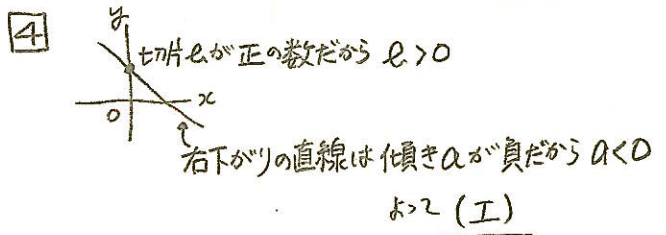 4
y
切片bが正の数だから b>0
x
0
右下がりの直線は傾きaが負だから a<0
よって (エ)